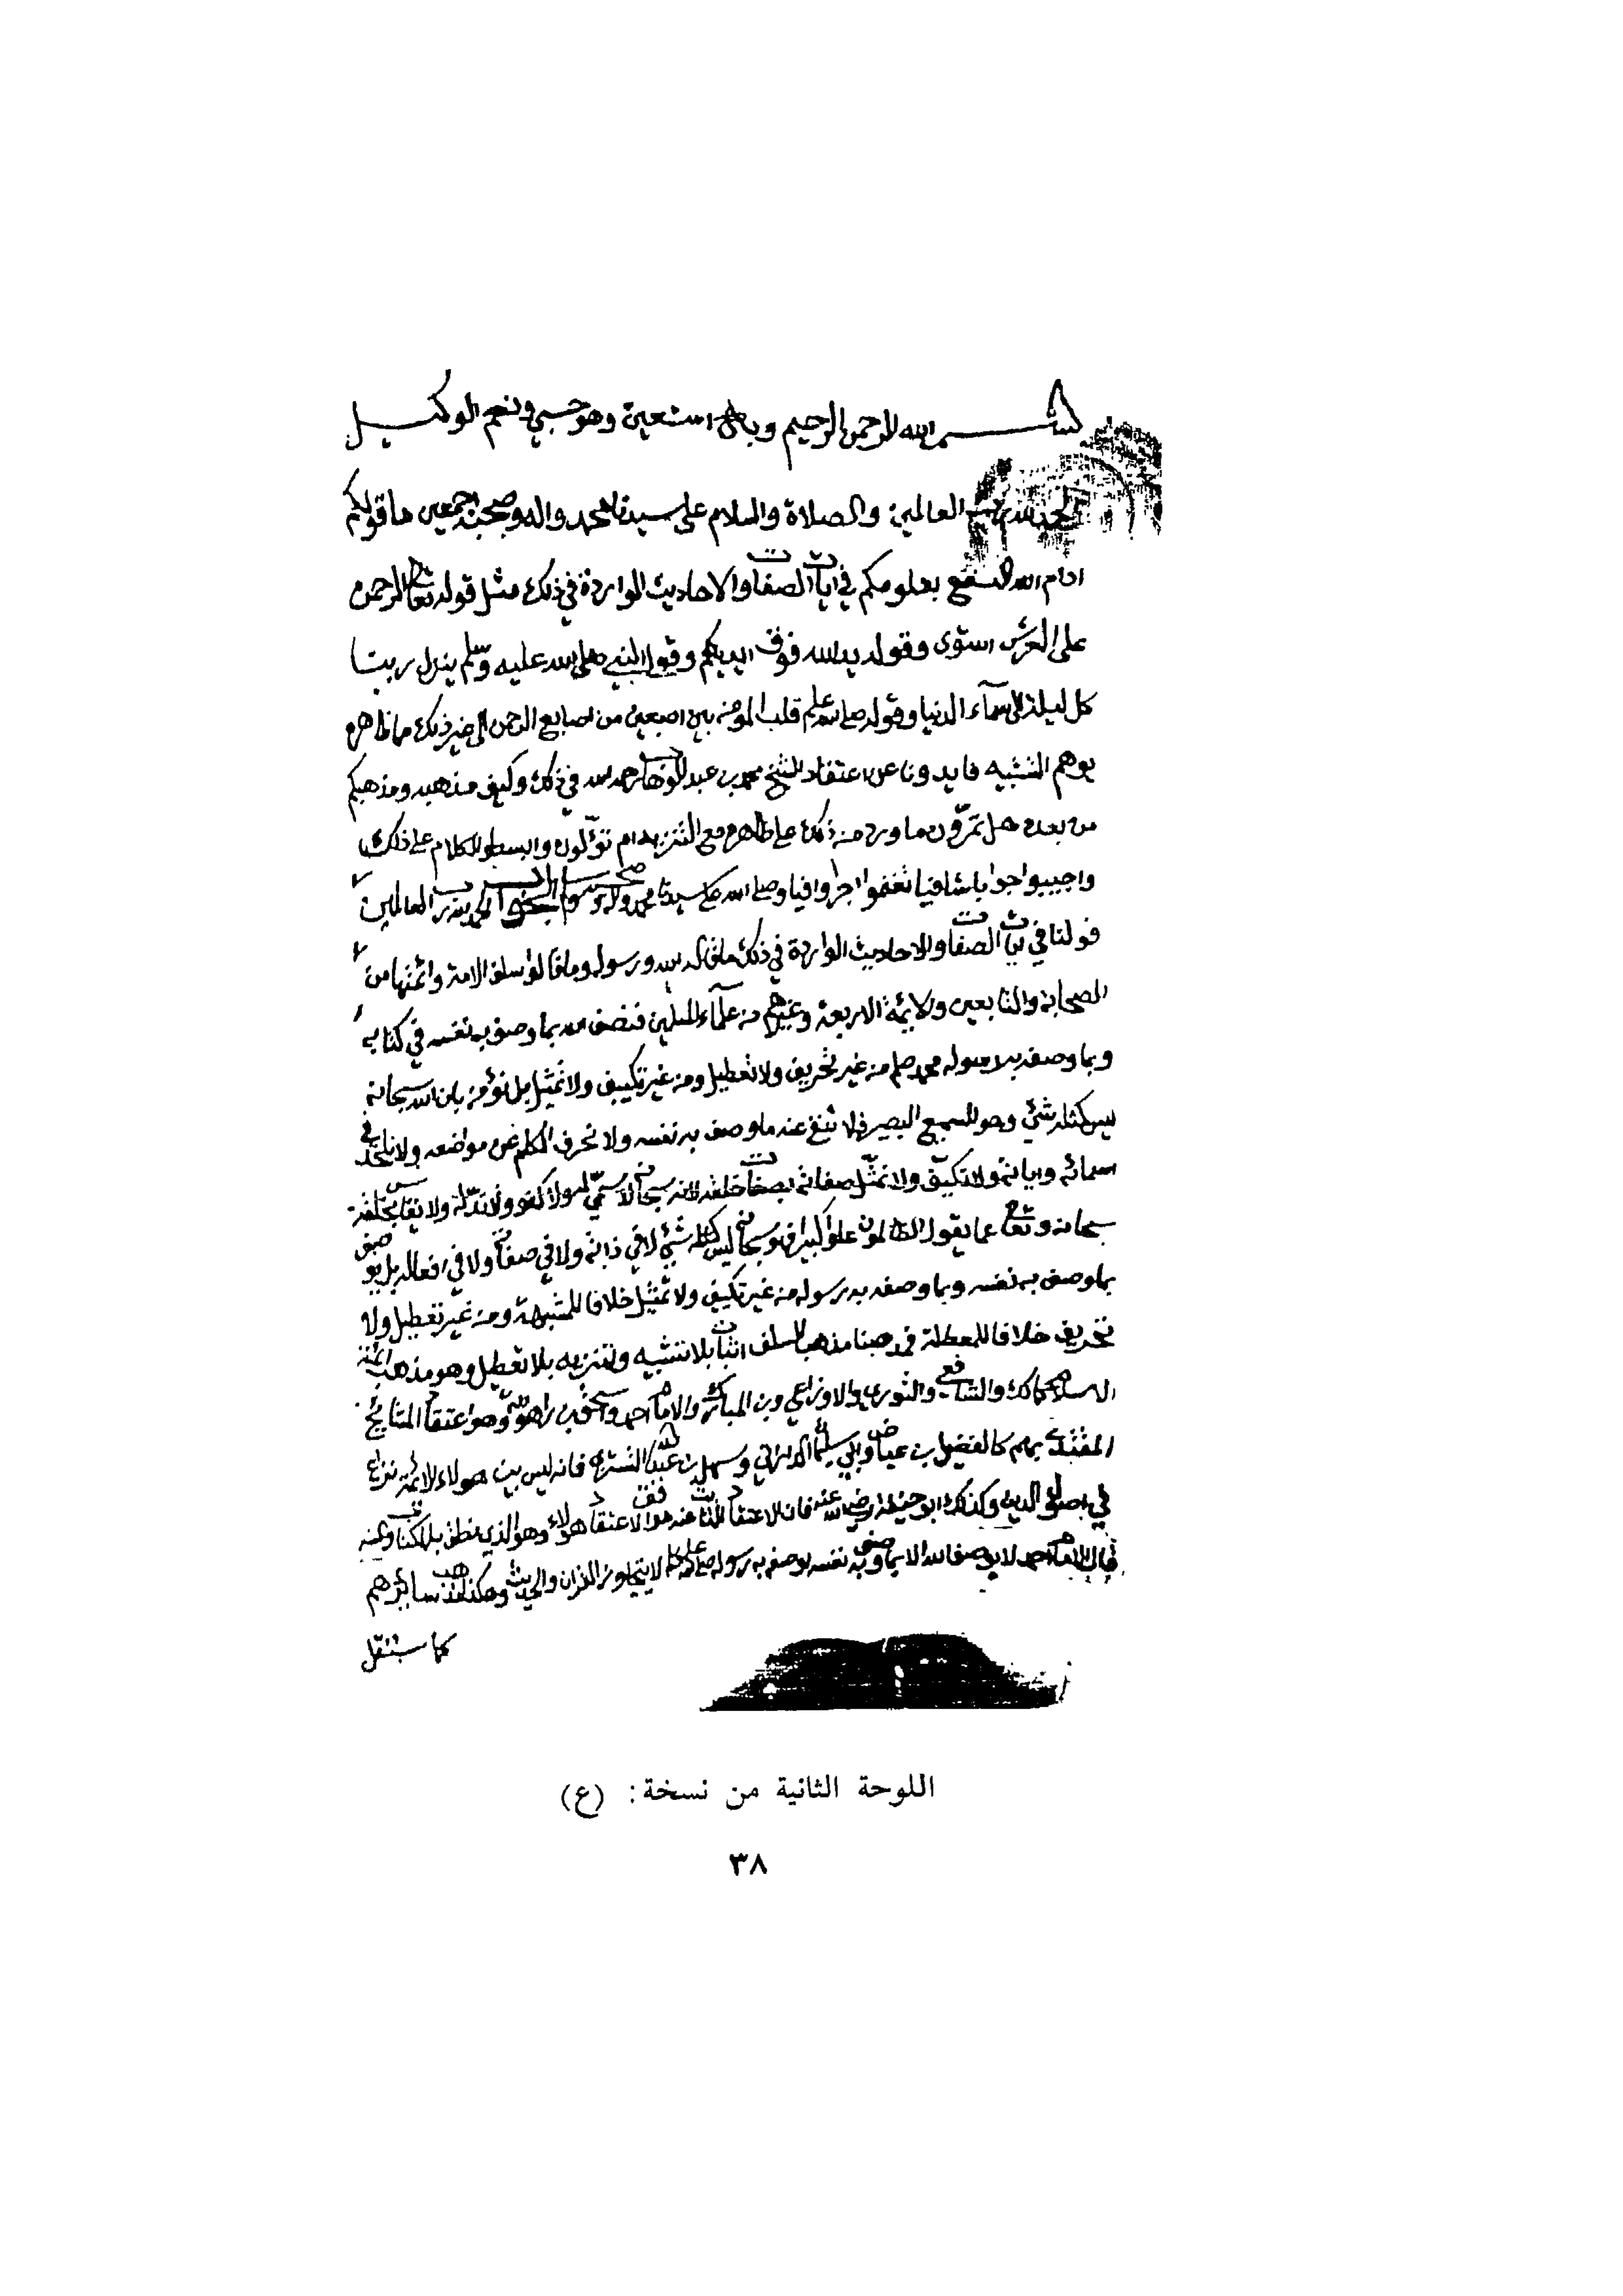 بسم الله الرحمن الرحيم وبه استعين وهو حسبي ونعم الوكيل
الحمد لله رب العالمين والصلاة والسلام على سيدنا محمد واله وصحبه اجمعين ما قولكم
ادام الله النفع بعلومكم في ايات الصفات والاحاديث الواردة في ذلك مثل قوله تعالى الرحمن
على العرش استوى وقوله يد الله فوق ايديكم وقول النبي صلى الله عليه وسلم ينزل ربنا
كل ليلة الى سماء الدنيا وقوله صلى الله عليه وسلم قلب المومن بين اصبعين من اصابع الرحمن الى غير ذلك مما ظاهره
يوهم التشبيه فايدونا عن اعتقاد الشيخ محمد بن عبد الوهاب رحمه الله في ذلك وكيف مذهبه ومذهبكم
من بعده هل تمرّون ما ورد من ذلك على ظاهره مع التنزيه ام تؤّلون وابسطوا الكلام على ذلك
واجيبوا جوابا شافيا تغنموا اجرا وافيا وصلى الله على سيدنا محمد واله وسلم الجواب الحمد لله رب العالمين
قولنا في ايات الصفات والاحاديث الواردة في ذلك ما قاله الله ورسوله وما قاله سلف الامة وائمتها من
الصحابة والتابعين والايمة الاربعة وغيرهم من علماء المسلمين فنصف الله بما وصف به نفسه في كتابه
وبما وصفه به رسوله محمد صلعم من غير تحريف ولا تعطيل ومن غير تكييف ولا تمثيل بل نؤمن بان الله سبحانه
ليس كمثله شئ وهو السميع البصير فلا ننفي عنه ما وصف به نفسه ولا نحرف الكلم عن مواضعه ولا نلحد في
اسمائه واياته ولا نكيّف ولا نمثّل صفاته بصفات خلقه لانه سبحانه لا سميّ له ولا كفو ولا ندّ له ولا يقاس بخلقه
سبحانه وتعالى عما يقول الظالمون علوا كبيرا فهو سبحانه ليس كمثله شئ لا في ذاته ولا في صفاته ولا في افعاله بل يوصف
بما وصف به نفسه وبما وصفه به رسوله من غير تكييف ولا تمثيل خلافا للمشبهة ومن غير تعطيل ولا
تحريف خلافا للمعطلة فمذهبنا مذهب السلف اثبات بلا تشبيه وتنزيه بلا تعطيل وهو مذهب ائمة
الاسلام كمالك والشافعي والثوري والاوزاعي وبن المبارك والامام احمد واسحق بن راهويه وهو اعتقاد المشايخ
المقتدى بهم كالفضيل بن عياض وابي سليمان الداراني وسهل بن عبد الله التستري فانه ليس بين هولاء الائمة نزاع
في اصول الدين وكذلك ابو حنيفة رضي الله عنه فان الاعتقاد الثابت عنه موافق لاعتقاد هولاء وهو الذي نطق به الكتاب والسنة
قال الامام احمد لا يوصف الله الا بما وصف به نفسه او وصفه به رسوله صلى الله عليه وسلم لا يتجاوز القران والحديث وهكذا مذهب سائرهم
كما سننقل
اللوحة الثانية من نسخة: (ع)
٣٨